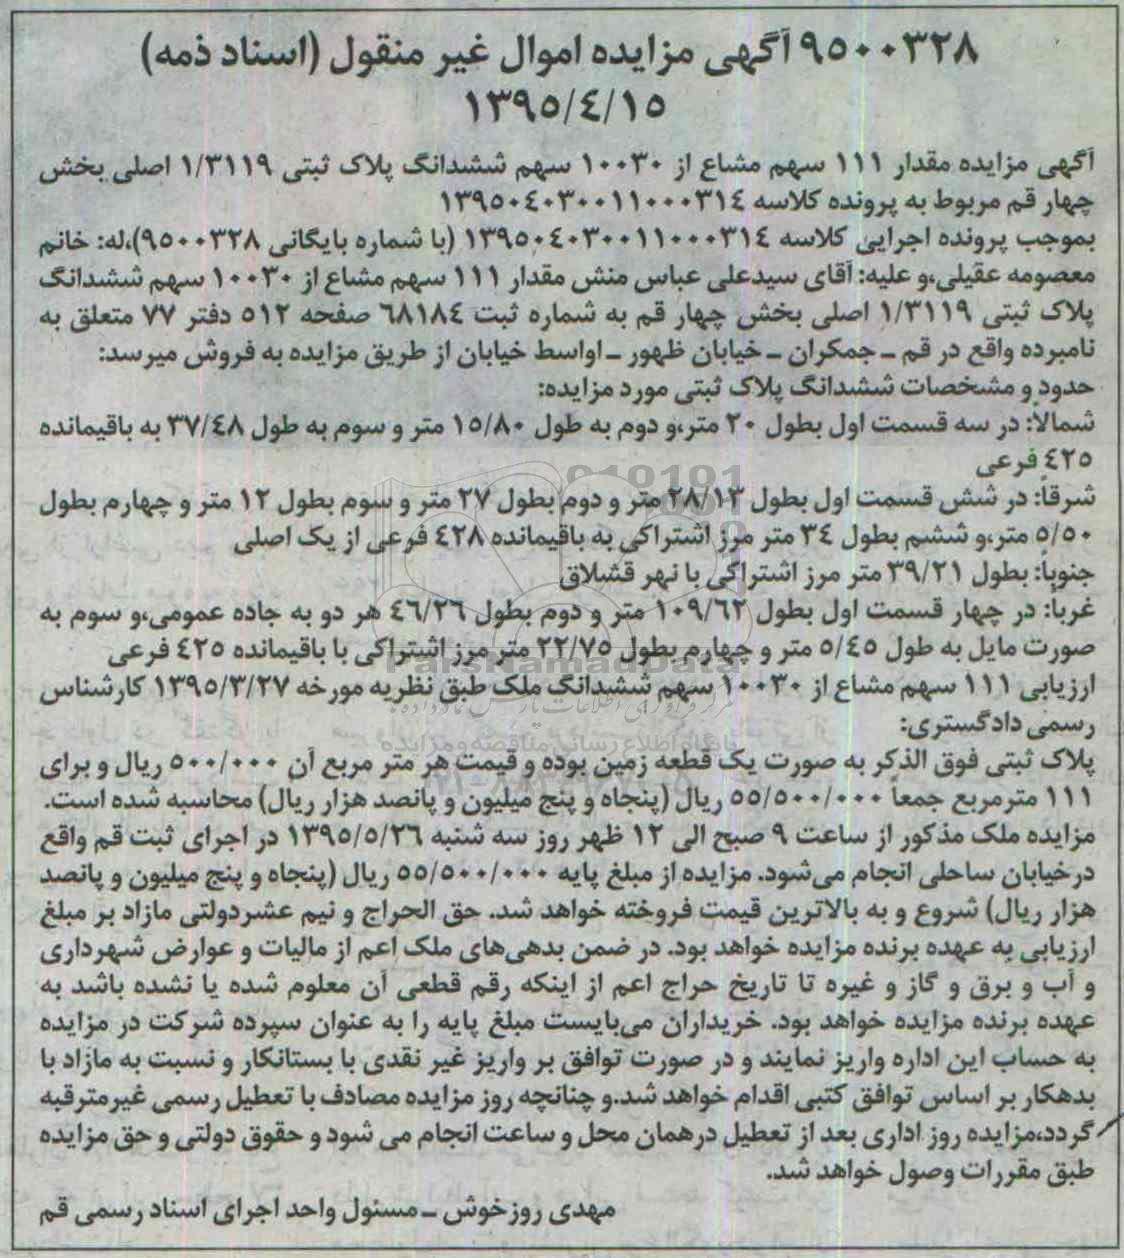 ۹۵۰۰۳۲۸ آگهی مزایده اموال غیر منقول (اسناد ذمه)
۱۳۹۵/٤/۱۵
آگهی مزایده مقدار ۱۱۱ سهم مشاع از ۱۰۰۳۰ سهم ششدانگ پلاک ثبتی ۱/۳۱۱۹ اصلی بخش
چهار قم مربوط به پرونده کلاسه ۱۳۹۵۰٤۰۳۰۰۱۱۰۰۰۳۱٤
بموجب پرونده اجرایی کلاسه ۱۳۹۵۰٤۰۳۰۰۱۱۰۰۰۳۱٤ (با شماره بایگانی ۹۵۰۰۳۲۸)،له: خانم
معصومه عقیلی،و علیه: آقای سیدعلی عباس منش مقدار ۱۱۱ سهم مشاع از ۱۰۰۳۰ سهم ششدانگ
پلاک ثبتی ۱/۳۱۱۹ اصلی بخش چهار قم به شماره ثبت ٦۸۱۸٤ صفحه ۵۱۲ دفتر ۷۷ متعلق به
نامبرده واقع در قم ـ جمکران ـ خیابان ظهور ـ اواسط خیابان از طریق مزایده به فروش میرسد:
حدود و مشخصات ششدانگ پلاک ثبتی مورد مزایده:
شمالاً: در سه قسمت اول بطول ۲۰ متر،و دوم به طول ۱۵/۸۰ متر و سوم به طول ۳۷/٤۸ به باقیمانده
٤۲۵ فرعی
شرقاً: در شش قسمت اول بطول ۲۸/۱۳ متر و دوم بطول ۲۷ متر و سوم بطول ۱۲ متر و چهارم بطول
۵/۵۰ متر،و ششم بطول ۳٤ متر مرز اشتراکی به باقیمانده ٤۲۸ فرعی از یک اصلی
جنوباً: بطول ۳۹/۲۱ متر مرز اشتراکی با نهر قشلاق
غرباً: در چهار قسمت اول بطول ۱۰۹/٦۲ متر و دوم بطول ٤٦/۲٦ هر دو به جاده عمومی،و سوم به
صورت مایل به طول ۵/٤۵ متر و چهارم بطول ۲۲/۷۵ متر مرز اشتراکی با باقیمانده ٤۲۵ فرعی
ارزیابی ۱۱۱ سهم مشاع از ۱۰۰۳۰ سهم ششدانگ ملک طبق نظریه مورخه ۱۳۹۵/۳/۲۷ کارشناس
رسمی دادگستری:
پلاک ثبتی فوق الذکر به صورت یک قطعه زمین بوده و قیمت هر متر مربع آن ۵۰۰/۰۰۰ ریال و برای
۱۱۱ مترمربع جمعاً ۵۵/۵۰۰/۰۰۰ ریال (پنجاه و پنج میلیون و پانصد هزار ریال) محاسبه شده است.
مزایده ملک مذکور از ساعت ۹ صبح الی ۱۲ ظهر روز سه شنبه ۱۳۹۵/۵/۲٦ در اجرای ثبت قم واقع
درخیابان ساحلی انجام می‌شود. مزایده از مبلغ پایه ۵۵/۵۰۰/۰۰۰ ریال (پنجاه و پنج میلیون و پانصد
هزار ریال) شروع و به بالاترین قیمت فروخته خواهد شد. حق الحراج و نیم عشردولتی مازاد بر مبلغ
ارزیابی به عهده برنده مزایده خواهد بود. در ضمن بدهی‌های ملک اعم از مالیات و عوارض شهرداری
و آب و برق و گاز و غیره تا تاریخ حراج اعم از اینکه رقم قطعی آن معلوم شده یا نشده باشد به
عهده برنده مزایده خواهد بود. خریداران می‌بایست مبلغ پایه را به عنوان سپرده شرکت در مزایده
به حساب این اداره واریز نمایند و در صورت توافق بر واریز غیر نقدی با بستانکار و نسبت به مازاد با
بدهکار بر اساس توافق کتبی اقدام خواهد شد.و چنانچه روز مزایده مصادف با تعطیل رسمی غیرمترقبه
گردد،مزایده روز اداری بعد از تعطیل درهمان محل و ساعت انجام می شود و حقوق دولتی و حق مزایده
طبق مقررات وصول خواهد شد.
مهدی روزخوش ـ مسئول واحد اجرای اسناد رسمی قم
ParsNamadData
پایگاه اطلاع رسانی مناقصه و مزایده